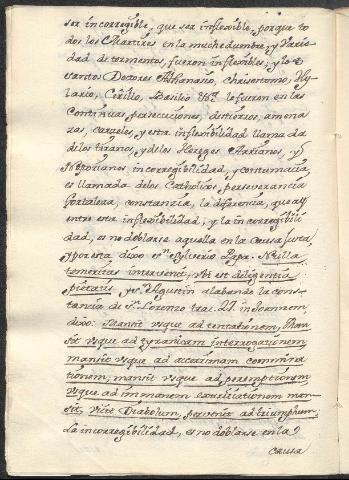 ser incorregible, que ser inflexible, porque to
dos los Martires en la muchedumbre, y varie-
dad de tormentos, fueron inflexibles, y los
santos Doctores Athanasio, Chrisostomo, Hy-
lario, Cirilio, Basilio &ª. lo fueron en las
continuas persecuciones, destierros, amena
zas, carzeles, y esta inflexibilidad llamada
de los tiranos, y de los Hereges Arrianos, y
Nestorianos, incorregibilidad, y contumacia,
es llamada de los Catholicos perseverancia
fortaleza, constanzia, la diferencia, que ay
entre esta inflexibilidad, y la incorregibili
dad, es no doblarse aquella en la causa justa,
y por esta dixo Sn. Sylverio Papa. Nulla
temeritas intervenit, ubi est diligentia
pietatis y Sn. Agustin alabando la cons-
tancia de Sn. Lorenzo trac. 27. in Joannem,
dixo: Mansit usque ad tentationem, man
sit usque ad tyranicam interrogationem
mansit usque ad acerrimam commina
tionem, mansit usque ad peremptionem
usque ad immanem exuxtationem man-
sit, vicit Diabolum, pervenit ad triumphum,
La incorregibilidad, es no doblarse en la
causa